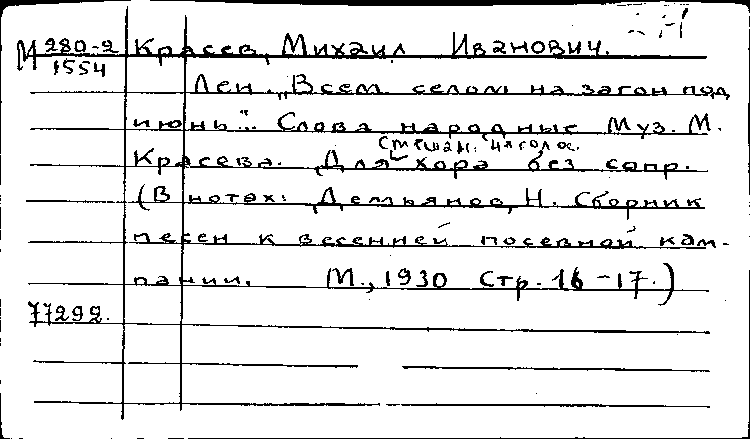 М 280-2 Красев, Михаил Иванович.
1554
Лен. „Всем селом на загон под
июнь". Слова народные Муз. М.
смешан. 4х голос.
Красева. Для хора без сопр.
(В нотах: Демьянов, Н. Сборник
песен к весенней посевной кам-
пании. М., 1930 Стр. 16-17.)
77292.